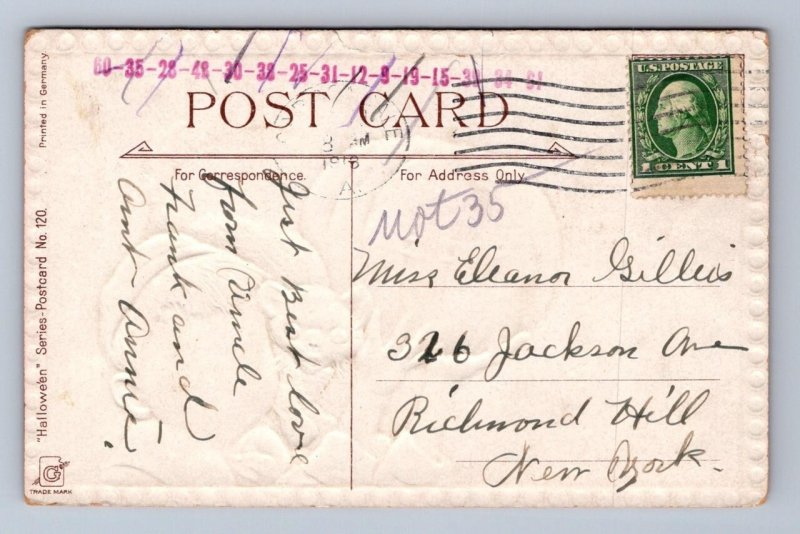 60-35-28-48-30-38-25-31-12-9-19-15-
POST CARD
For Correspondence.
For Address Only.
Printed in Germany
"Halloween" Series-Postcard No. 120.
G
TRADE MARK
U.S. POSTAGE
1 CENT 1
3 PM
1918
A.
Not 35
Just Best love
from Uncle
Frank and
Aunt Annie.
Miss Eleanor Gillies
326 Jackson Ave
Richmond Hill
New York.